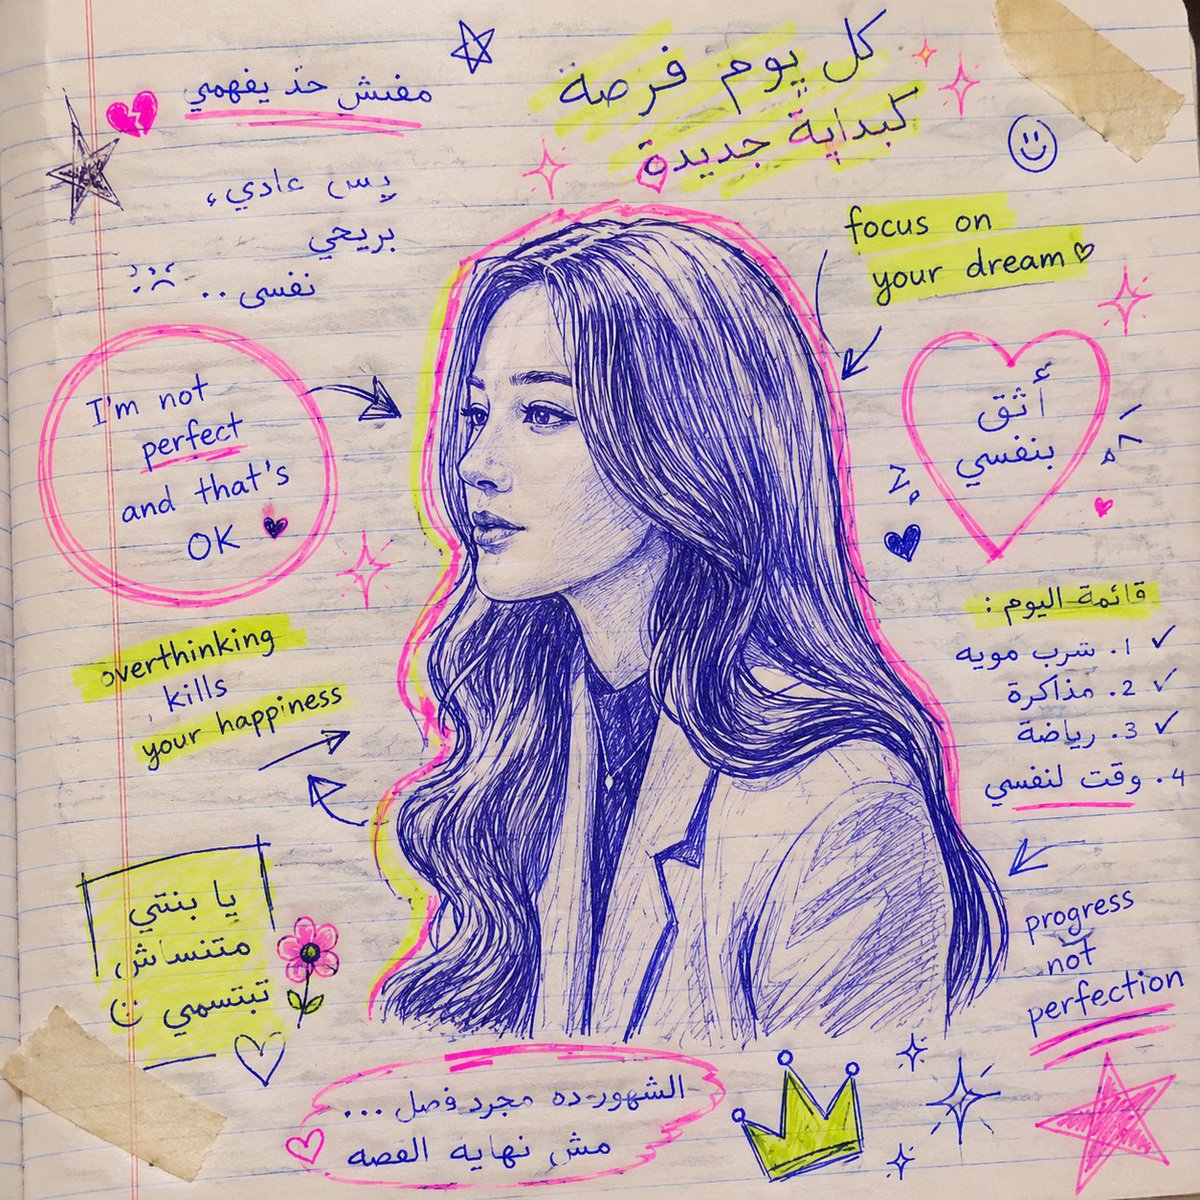 مفنش حد يفهمي
كل يوم فرصة
كبداية جديدة
بس عادي،
بريحي
نفسى..
focus on
your dream
I'm not
perfect
and that's
OK
أثق
بنفسي
overthinking
kills
your happiness
قائمة اليوم:
1. شرب مويه
2. مذاكرة
3. رياضة
4. وقت لنفسي
يا بنتي
متنساش
تبتسمي
progress
not
perfection
الشهور ده مجرد فصل...
مش نهاية القصه